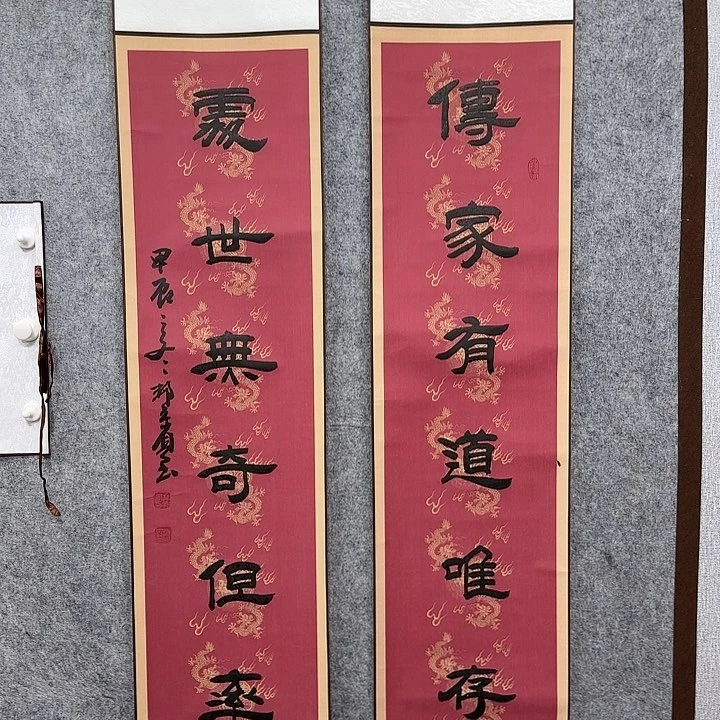 傳家有道唯存
處世無奇但率
甲辰